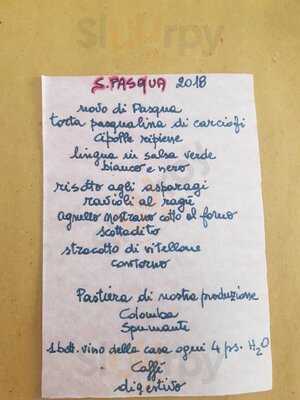 Sluurpy
S. PASQUA 2018
uovo di Pasqua
torta pasqualina di carciofi
cipolle ripiene
lingua in salsa verde
bianco e nero
risotto agli asparagi
ravioli al ragù
agnello nostrano cotto al forno
scottadito
stracotto di vitellone
contorno
Pastiera di nostra produzione
Colomba
Spumante
1 bott. vino della casa ogni 4 ps. H2O
Caffé
digestivo